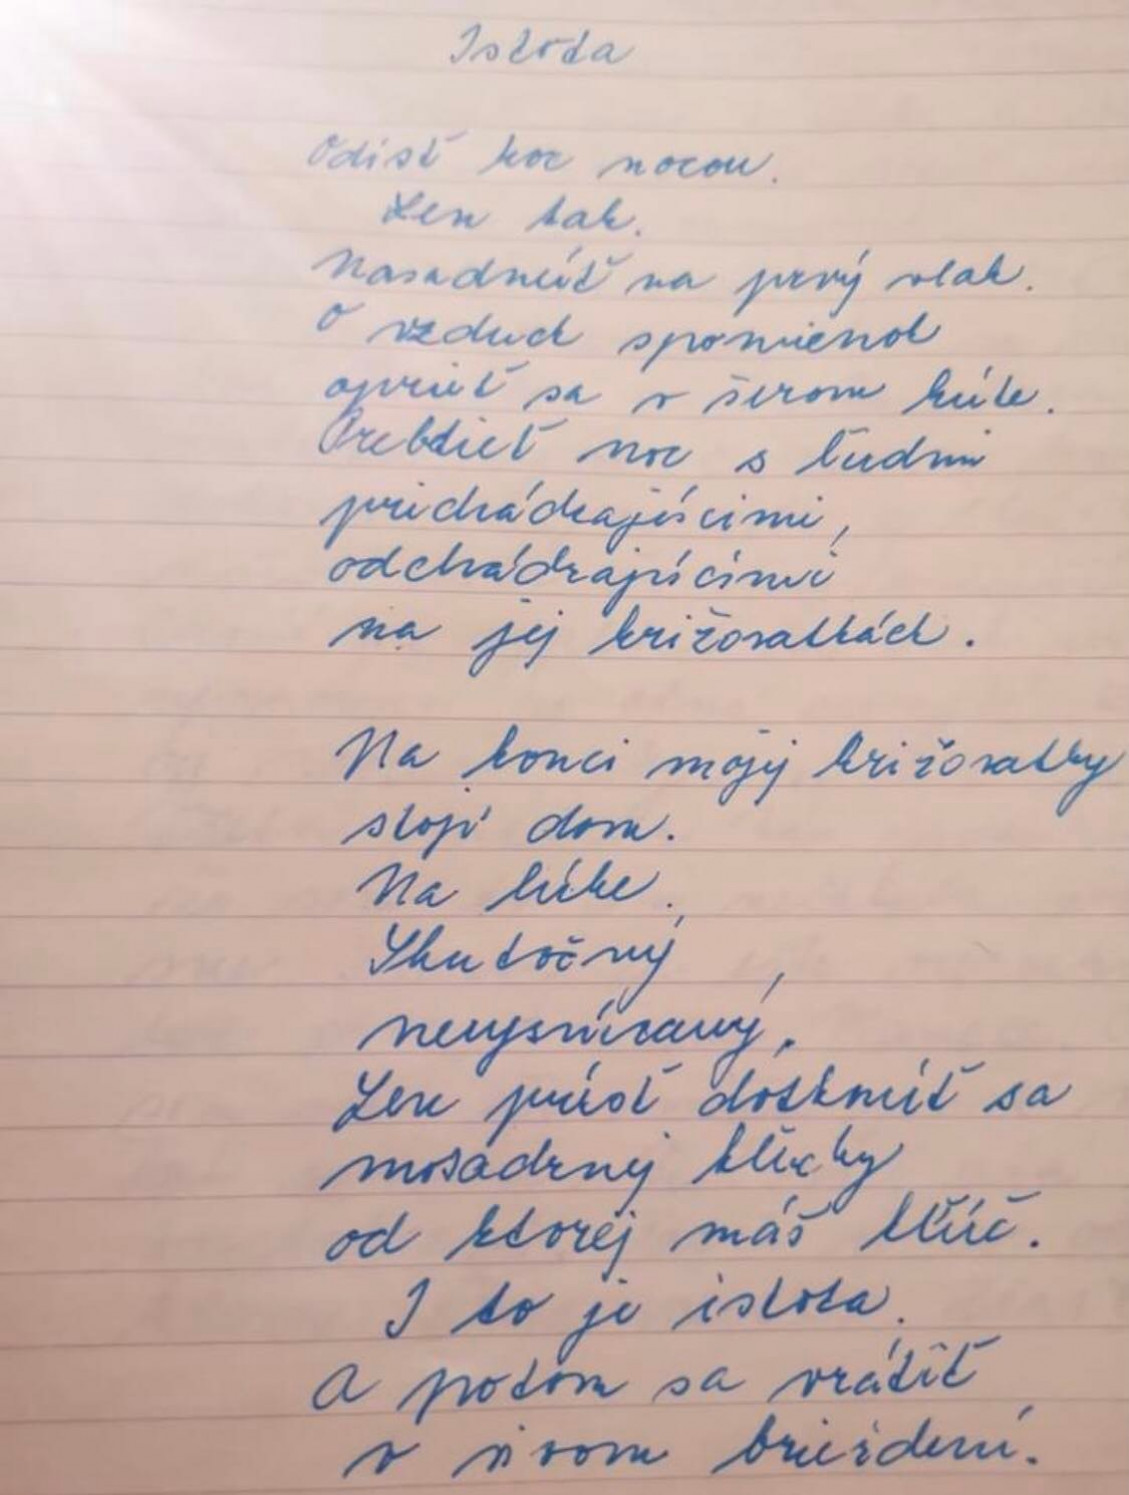 Istota
Odísť koc nocou.
Len tak.
Nasadnúť na prvý vlak.
O vzduch spomienok
oprieť sa v šerom kúte.
Prebdieť noc s ľuďmi
prichádzajúcimi,
odchádzajúcimi
na jej križovatkách.
Na konci mojej križovatky
stojí dom.
Na lúke.
Skutočný,
nevysnívaný.
Len prísť dotknúť sa
mosadznej kľučky
od ktorej máš kľúč.
I to je istota.
A potom sa vrátiť
v sivom brieždení.